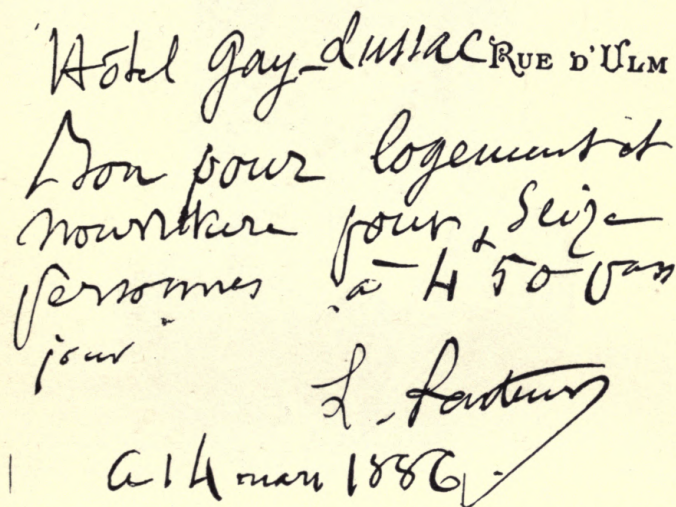 Hôtel Gay-Lussac RUE D'ULM
Bon pour logement et
nourriture pour seize
personnes à 4f 50 par
jour
L. Pasteur
Ce 14 mars 1886.